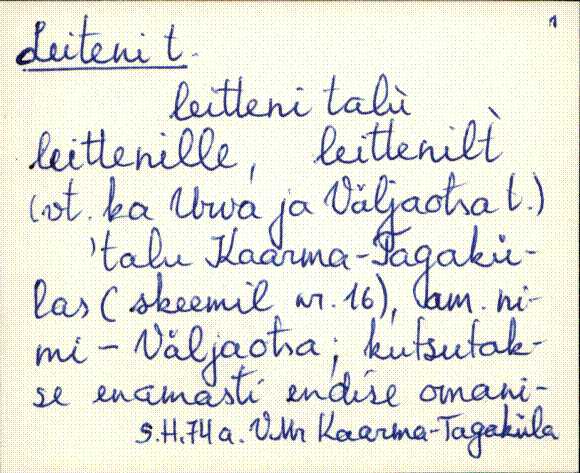 1
Leiteni t.
leitteni talù
leittenille, leittenilt̀
(vt. ka Urva ja Väljaotsa t.)
'talu Kaarma-Tagakü-
las (skeemil nr. 16), am. ni-
mi - Väljaotsa; kutsutak-
se enamasti endise omani-
S.H.74 a. V.Mr Kaarma-Tagaküla